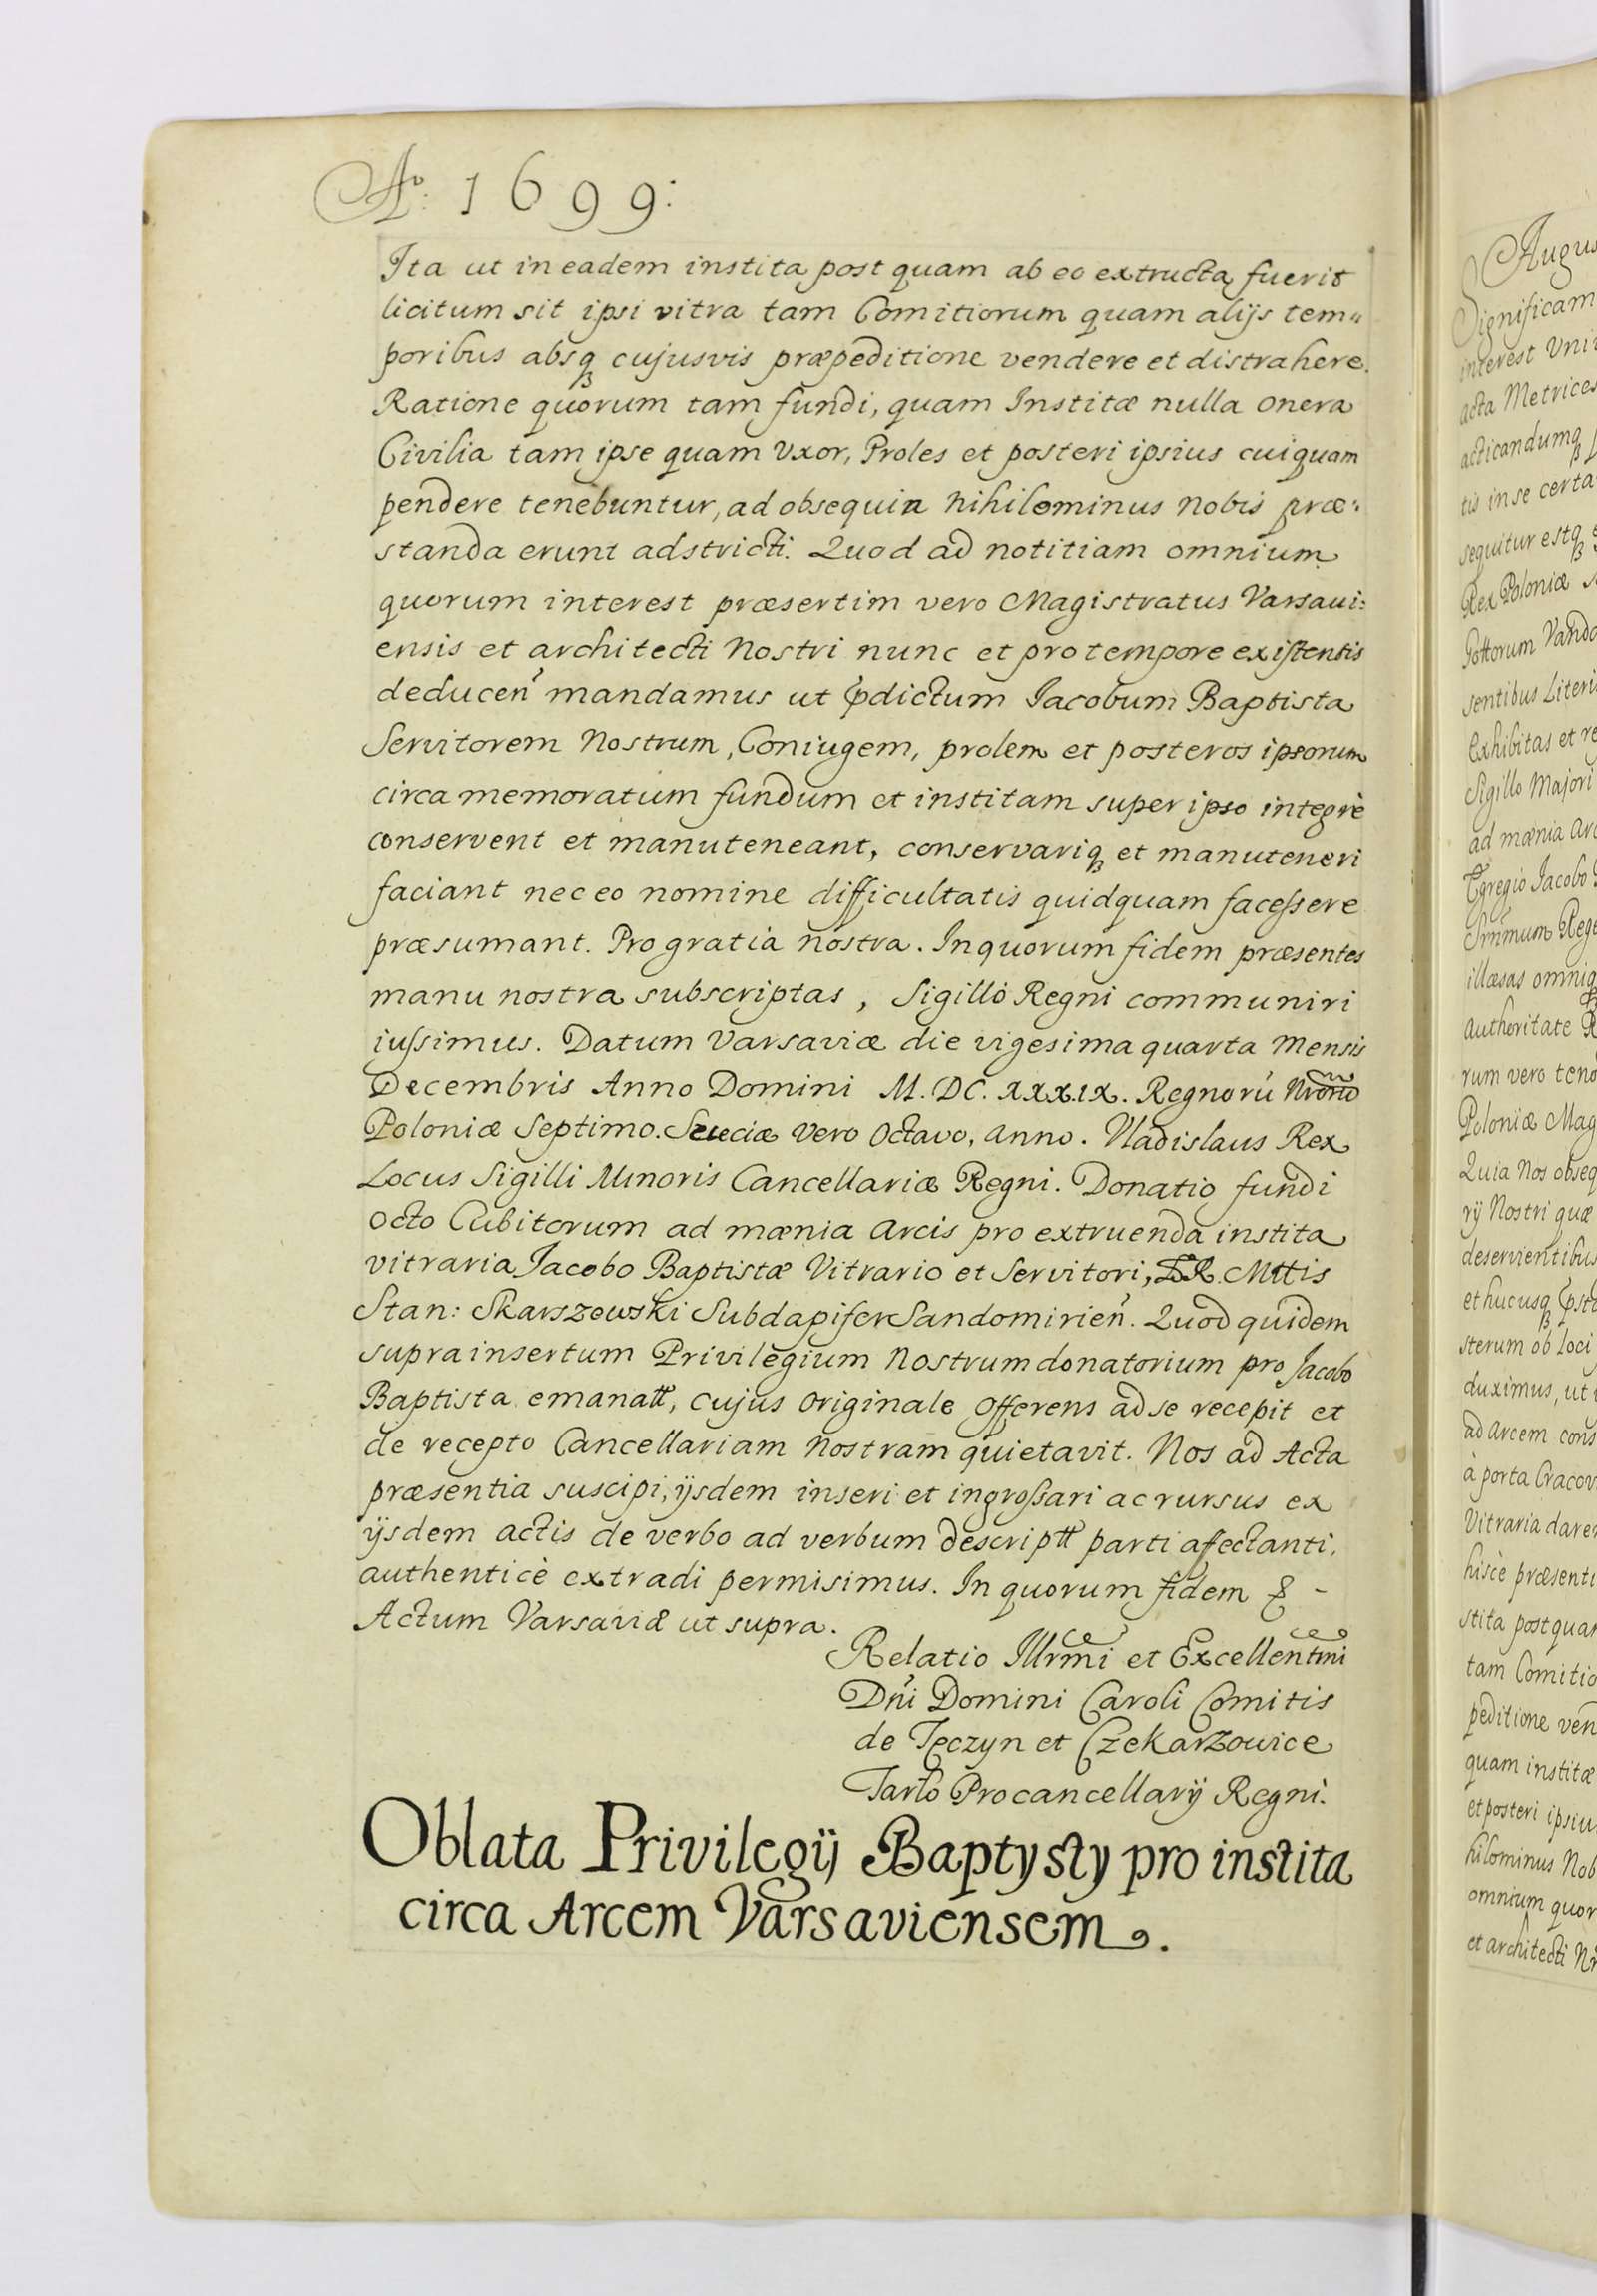 Ao. 1699:
Ita ut in eadem instita post quam ab eo extructa fuerit
licitum sit ipsi vitra tam Comitiorum quam alijs tem„
poribus absq cujusvis præpeditione vendere et distrahere.
Ratione quorum tam fundi, quam Institæ nulla onera
Civilia tam ipse quam Uxor, Proles et posteri ipsius cuiquam
pendere tenebuntur, ad obsequia nihilominus Nobis præ:
standa erunt adstricti. Quod ad notitiam omnium
quorum interest præsertim vero Magistratus Varsavi:
ensis et architecti Nostri nunc et pro tempore existentis
deducen̄ mandamus ut p̄dictum Jacobum Baptista
Servitorem Nostrum, Coniugem, prolem et posteros ipsorum
circa memoratum fundum et institam super ipso integrè
conservent et manuteneant, conservariq et manuteneri
faciant nec eo nomine difficultatis quidquam facessere
præsumant. Pro gratia nostra. In quorum fidem præsentes
manu nostra subscriptas, Sigillo Regni communiri
iussimus. Datum Varsaviæ die vigesima quarta Mensis
Decembris Anno Domini M.DC.XXX.IX. Regnorū Nrorū
Poloniæ Septimo. Sueciæ vero Octavo, anno. Vladislaus Rex
Locus Sigilli Minoris Cancellariæ Regni. Donatio fundi
octo Cubitorum ad mænia Arcis pro extruenda instita
vitraria Jacobo Baptistæ Vitrario et Servitori, S.R. Mttis
Stan: Skarszewski Subdapifer Sandomirien̄. Quod quidem
supra insertum Privilegium Nostrum donatorium pro Jacobo
Baptista emanatt, cujus originale offerens ad se recepit et
de recepto Cancellariam nostram quietavit. Nos ad Acta
præsentia suscipi, ijsdem inseri et ingrossari ac rursus ex
ijsdem actis de verbo ad verbum descriptt parti affectanti,
authenticè extradi permisimus. In quorum fidem &
Actum Varsaviæ ut supra.
Relatio Illrmi et Excellentmi
Dn̄i Domini Caroli Comitis
de Tęczyn et Czekarzowice
Tarło Procancellarij Regni.
Oblata Privilegij Baptysty pro instita
circa Arcem Varsaviensem.
Augus
Significam
interest Uni
acta Metrices
acticandumq
tis in se certa
sequitur estq
Rex Poloniæ
Gottorum Vanda
sentibus Literi
Exhibitas et re
Sigillo Majori
ad mænia Arc
Egregio Jacobo
Srn̄mum Rege
illæsas omniq
authoritate R
rum vero teno
Poloniæ Mag
Quia Nos obseq
rij Nostri quæ
deservientibus
et hucusq p̄sta
sterum ob loci
duximus, ut
ad Arcem cons
à porta Cracov
Vitraria dare
hisce præsenti
stita postquam
tam Comitio
peditione ven
quam institæ
et posteri ipsiu
hilominus Nob
omnium quor
et architecti Nr